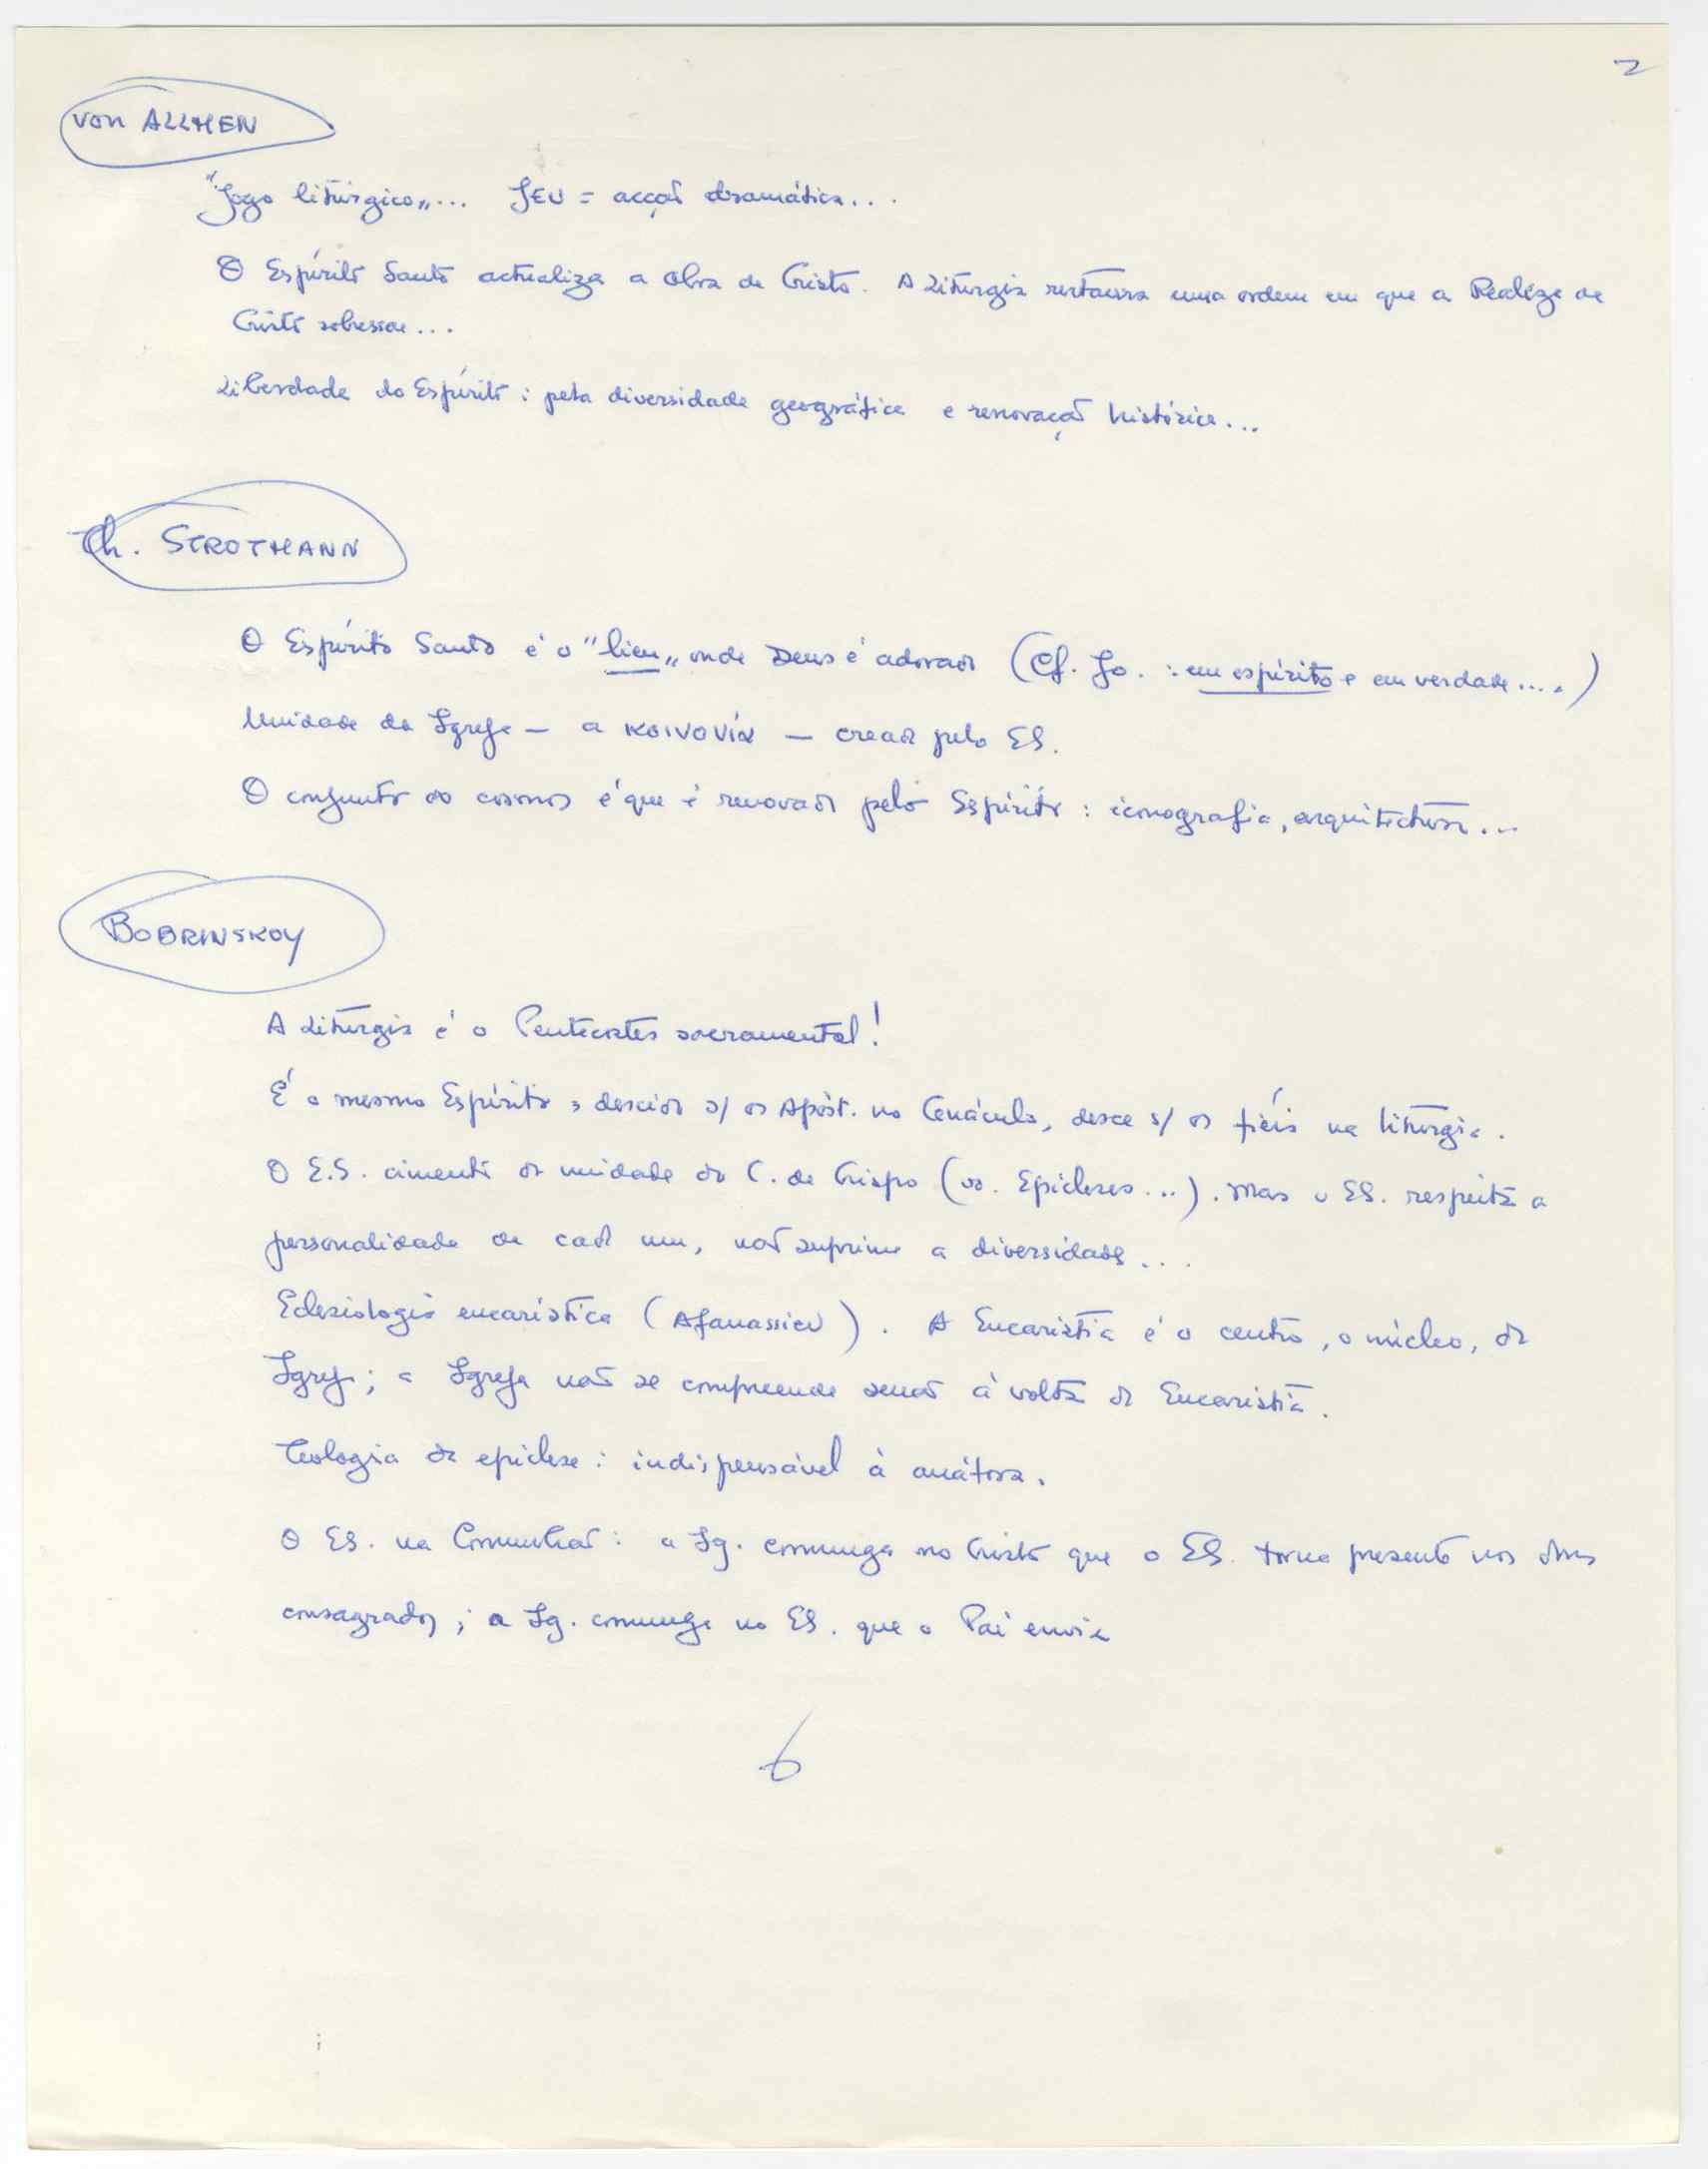 2
von ALLMEN
"Jogo litúrgico"... JEU = acção dramática...
O Espírito Santo actualiza a obra de Cristo. A Liturgia restaura uma ordem em que a Realeza de
Cristo sobressae...
Liberdade do Espírito: pela diversidade geográfica e renovação histórica...
Th. STROTMANN
O Espírito Santo é o "lieu" onde Deus é adorado (Cf. Jo. : em espírito e em verdade....)
Unidade da Igreja — a κοινονία — creada pelo ES.
O conjunto do cosmos é que é renovado pelo Espírito: iconografia, arquitectura...
BOBRINSKOY
A Liturgia é o Pentecostes sacramental!
É o mesmo Espírito descido s/ os Apóst. no Cenáculo, desce s/ os fiéis na liturgia.
O E.S. cimenta a unidade do C. de Cristo (vs. Epicleses...). Mas o ES. respeita a
personalidade de cada um, não suprime a diversidade...
Eclesiologia eucarística (Afanassiev). A Eucaristia é o centro, o núcleo, da
Igreja; a Igreja não se compreende senão à volta da Eucaristia.
Teologia da epiclese: indispensável à anáfora.
O ES. na Comunhão: a Ig. comunga no Cristo que o ES. torna presente nos dons
consagrados; a Ig. comunga no ES. que o Pai envia